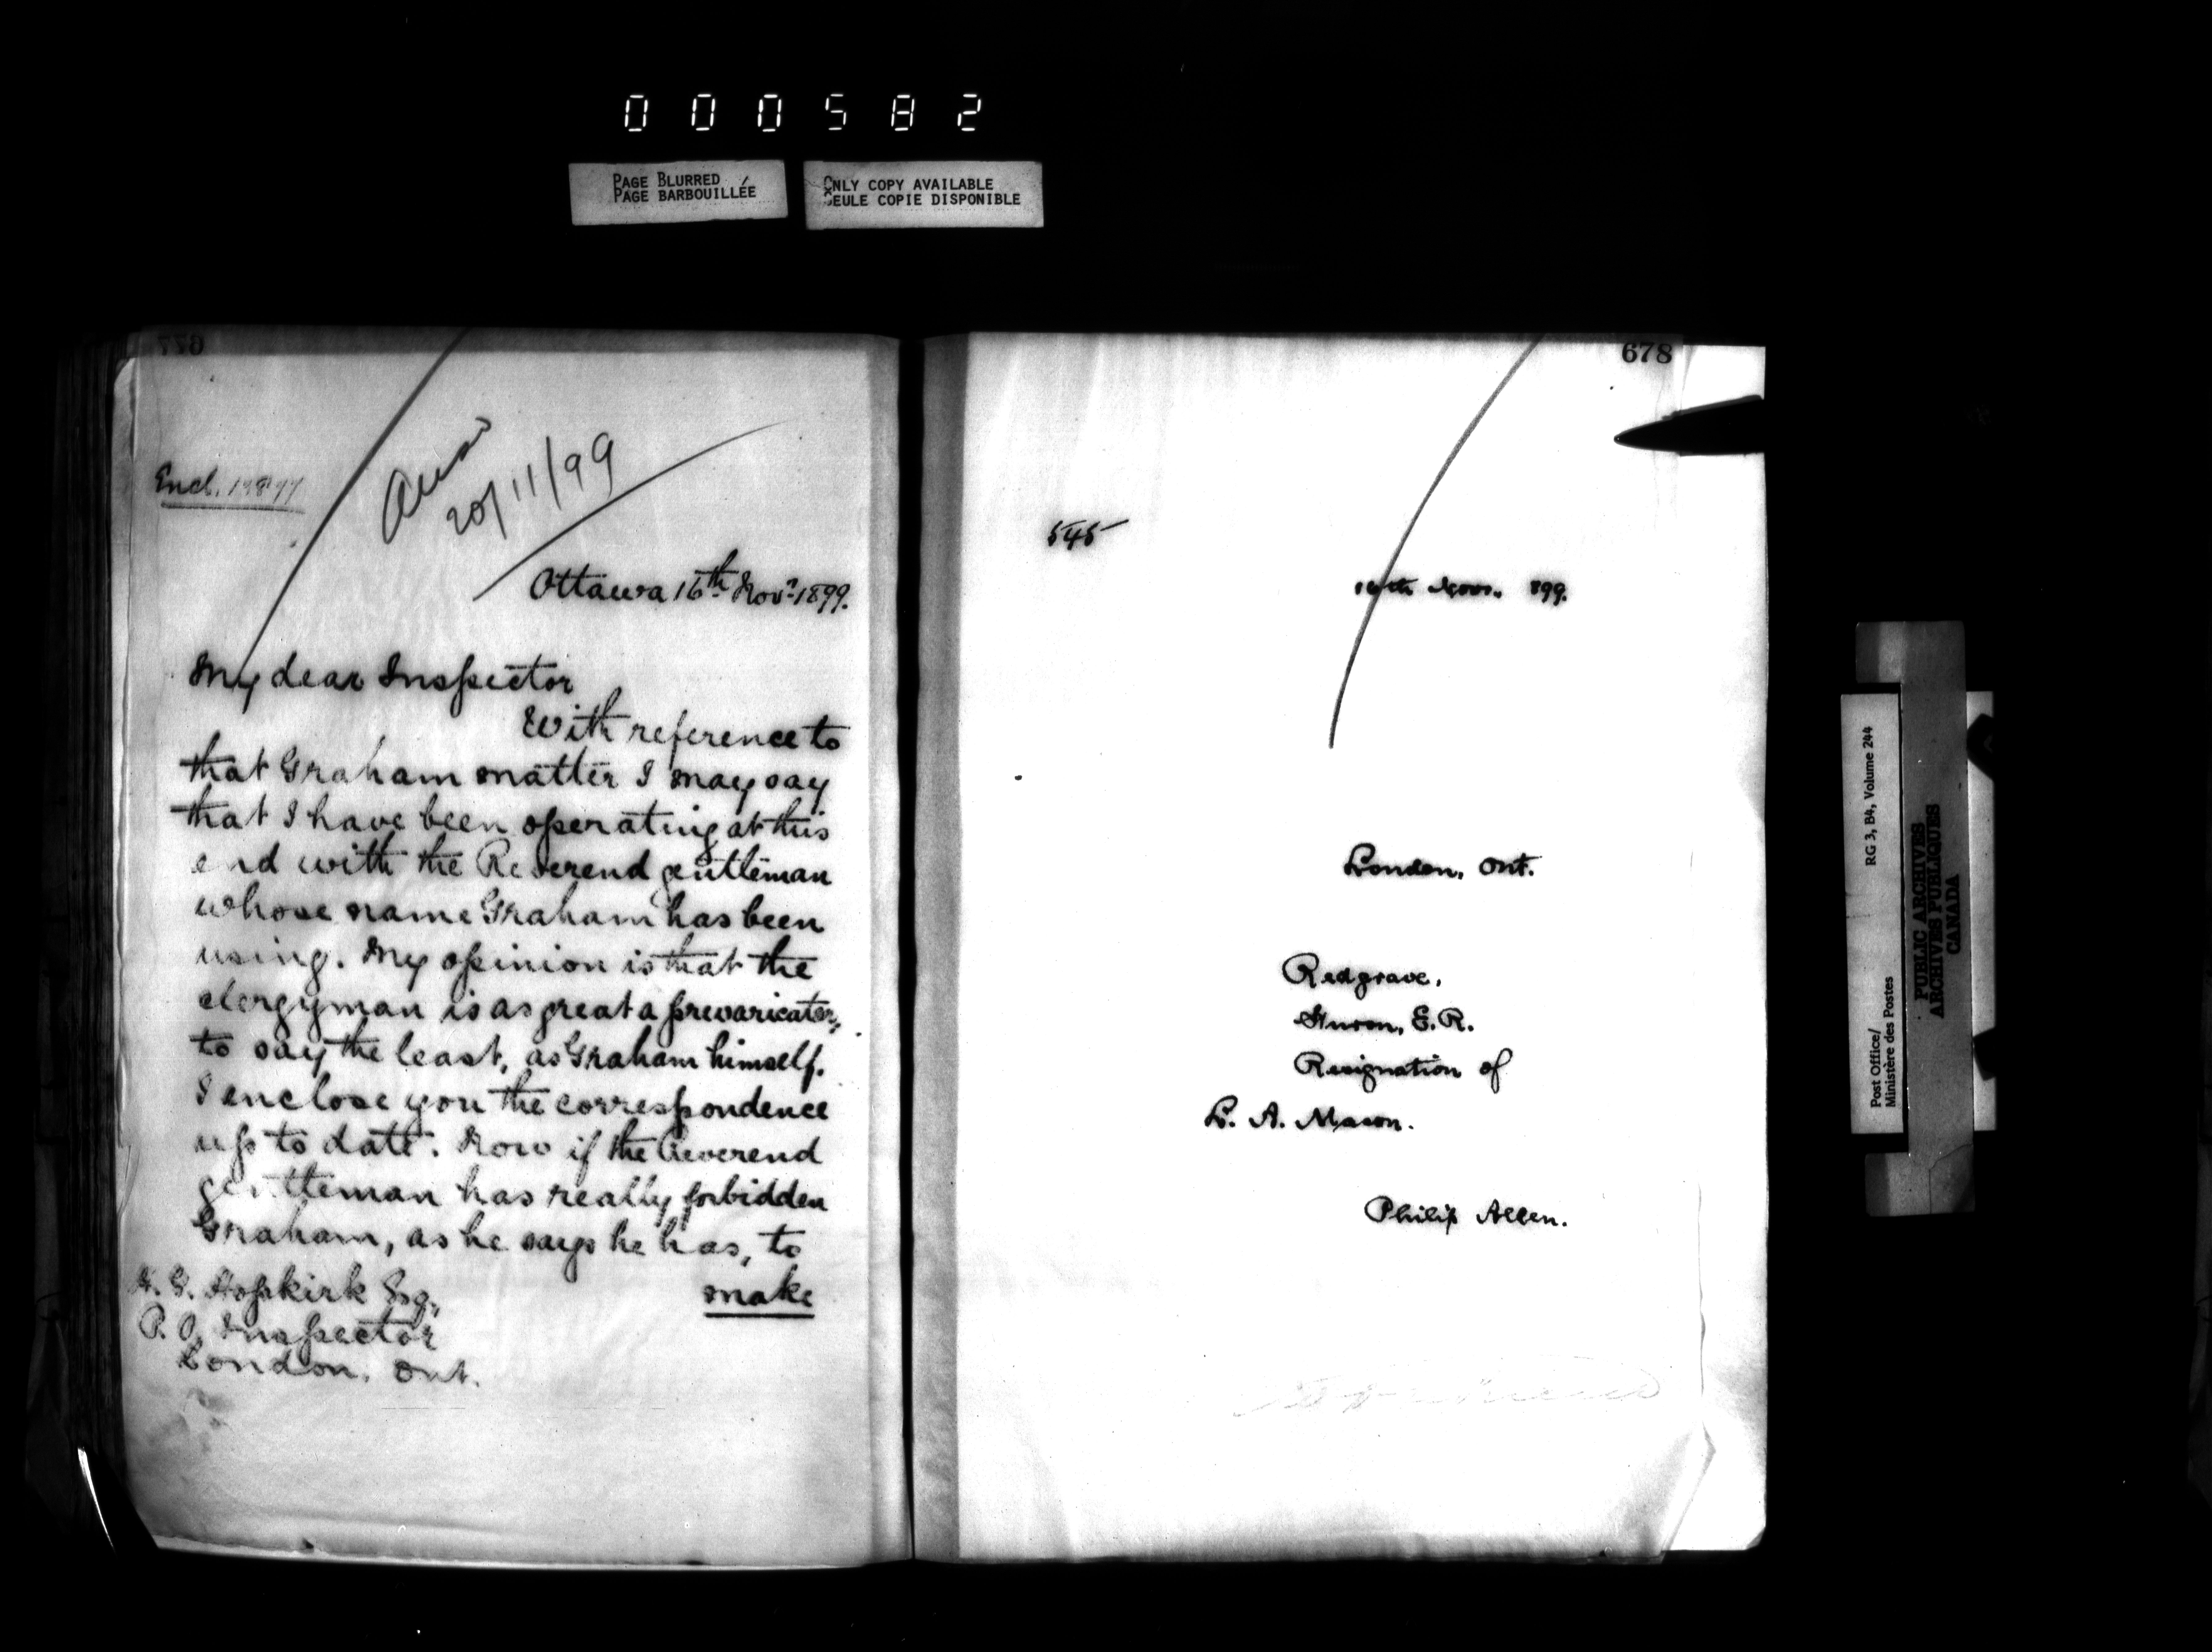 000582
PAGE BLURRED
PAGE BARBOUILLÉE
ONLY COPY AVAILABLE
SEULE COPIE DISPONIBLE
677
Encl.
Ansd
20/11/99
Ottawa 16th Novr 1899.
My dear Inspector
With reference to
that Graham matter I may say
that I have been operating at this
end with the Reverend gentleman
whose name Graham has been
using. My opinion is that the
clergyman is as great a prevaricator,
to say the least, as Graham himself.
I enclose you the correspondence
up to date. Now if the Reverend
gentleman has really forbidden
Graham, as he says he has, to
make
H. G. Hopkirk Esq,
P. O. Inspector
London, Ont.
678
545
16th Novr. 899.
London, Ont.
Redgrave,
Huron, E.R.
Resignation of
L. A. Mason.
Philip Allen.
RG 3, B4, Volume 244
Post Office/
Ministère des Postes
PUBLIC ARCHIVES
ARCHIVES PUBLIQUES
CANADA